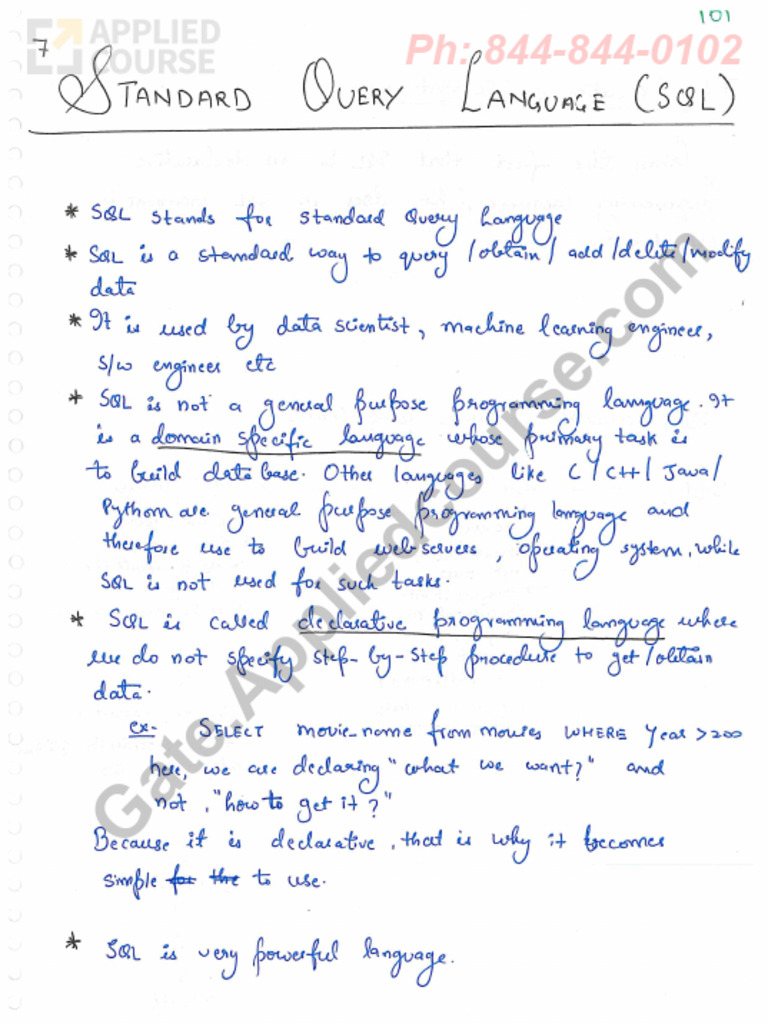 101
7
APPLIED
COURSE
Ph: 844-844-0102
STANDARD QUERY LANGUAGE (SQL)
* SQL stands for standard Query Language
* SQL is a standard way to query /obtain/ add /delete/modify
data
* It is used by data scientist, machine learning engineer,
S/W engineer etc
* SQL is not a general purpose programming language. It
is a domain specific language whose primary task is
to build data base. Other languages like C/C++/Java/
Python are general purpose programming language and
therefore use to build web servers, operating system, while
SQL is not used for such tasks.
* SQL is called declarative programming language where
we do not specify step-by-step procedure to get/obtain
data.
ex- SELECT movie_name from movies WHERE Year >200
here, we are declaring "what we want?" and
not, "how to get it?"
Because it is declarative, that is why it becomes
simple for the to use.
* SQL is very powerful language.
Gate.Appliedcourse.com